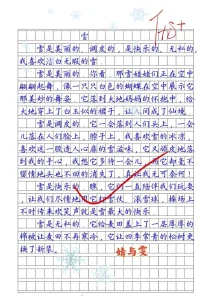 雪
雪是美丽的，调皮的，是快乐的，无私的，
我喜欢洁白无瑕的雪。
雪是美丽的，你看，那雪娃娃们正在空中
翩翩起舞，像一只只白色的蝴蝶在空中展示它
那美妙的舞姿，它落到大地妈妈的怀抱中，给
大地穿上了白玉似的裙子，让人间成了
雪是调皮的，它一会落到人们头上，一会
儿落在人们脸上、脖子上，我喜欢雪的冰凉，
喜欢这一股透人心扉的雪滋味，它又调皮地落
到我的手心，我想它多待一会儿，而它却毫不
留情地头也不回的消失了，且让我无可奈何！
雪是快乐的，瞧，它们一直陪伴我们玩耍，
让人们尽情地用它打雪仗，滚雪球，操场上
不时传来欢笑声就是雪最大的快乐
雪是无私的，它给麦田盖上了一层厚厚的
棉被让麦田不再寒冷，它让四季常青的松树更
换了新装。
情与雯